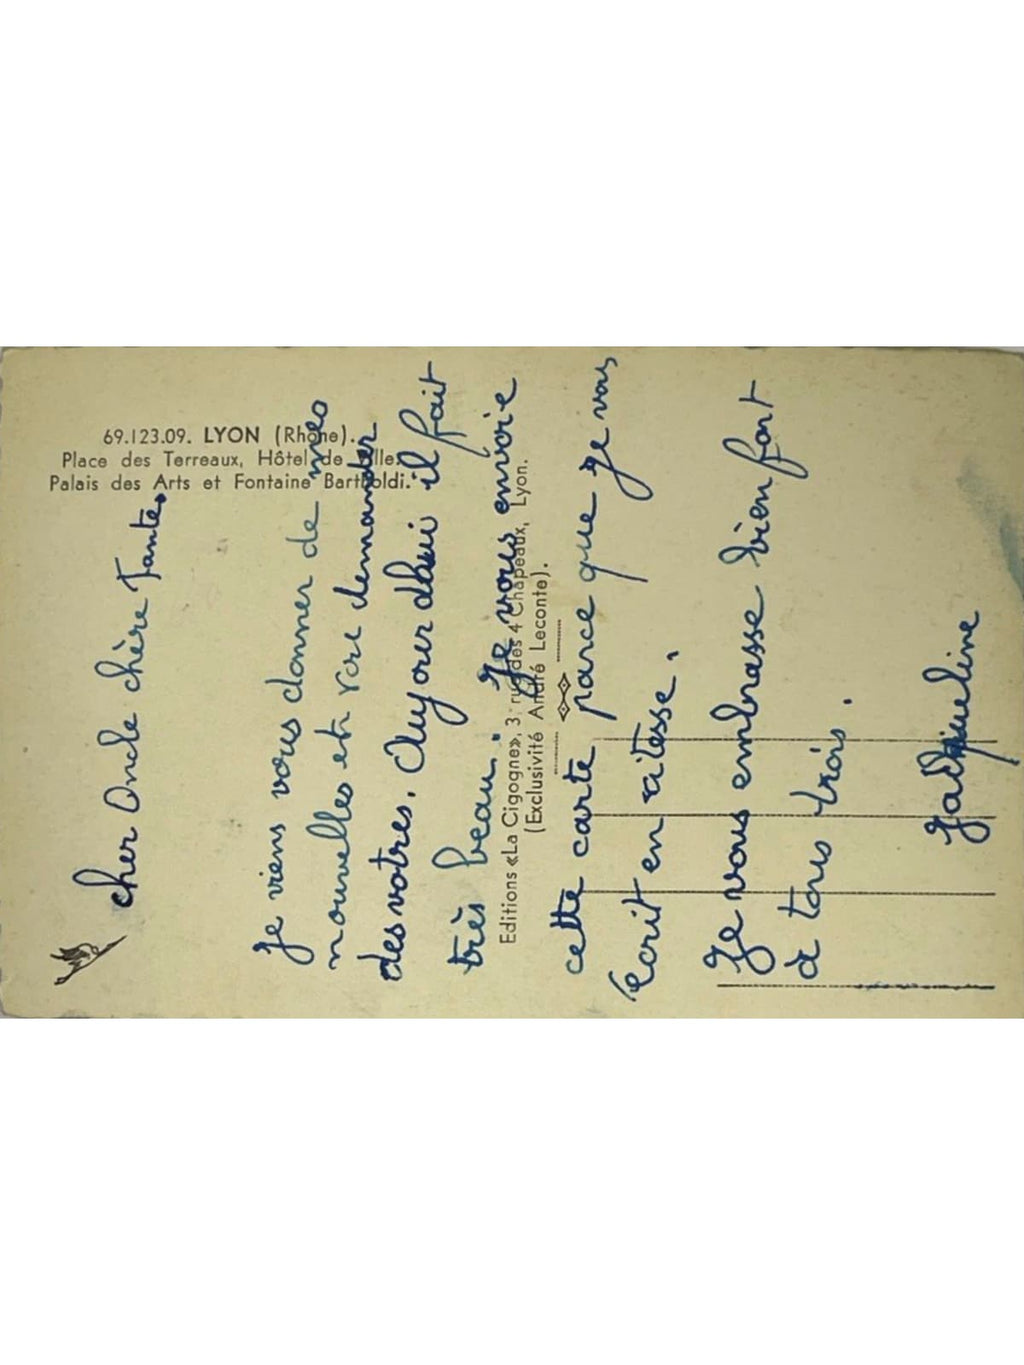 69.123.09. LYON (Rhône).
Place des Terreaux, Hôtel de Ville.
Palais des Arts et Fontaine Bartholdi.
Editions «La Cigogne», 3, rue des 4 Chapeaux, Lyon.
(Exclusivité André Leconte).
cher Oncle chère Tante.
Je viens vous donner de mes
nouvelles et vous demander
des votres. Aujourdhui il fait
très beau. Je vous envoie
cette carte parce que je vous
écrit en vitesse.
Je vous embrasse bien fort
à tous trois.
Jacqueline